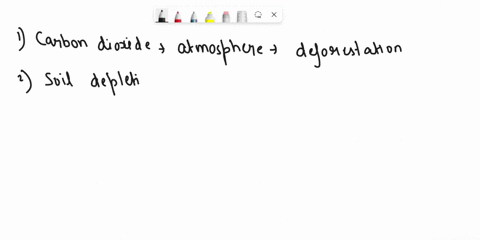 1) Carbon dioxide → atmosphere → deforestation
2) Soil depleti